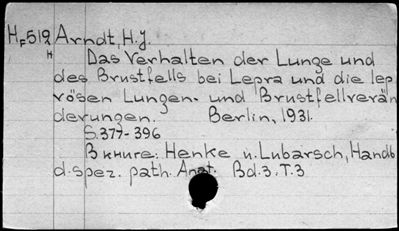 HF512 Arndt, H.J.
н Das Verhalten der Lunge und
des Brustfells bei Lepra und die lep
rösen Lungen- und Brustfellverän
derungen. Berlin, 1931.
S.377-396
В книге: Henke u. Lubarsch, Handb
d. spez. path. Anat. Bd.3. T.3